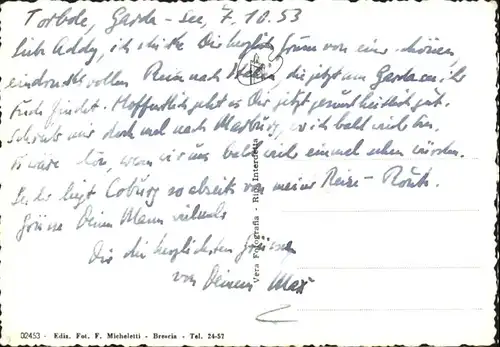 Torbole, Garda-see, 7.10.53
Liebe Addy, ich schicke Dir herzliche Grüsse von einer schönen,
eindrucksvollen Reise nach Italien, die jetzt am Gardasee ihr
Ende findet. Hoffentlich geht es Dir jetzt gesundheitlich gut.
Schreib mir doch mal nach Marburg, wo ich bald wieder bin.
Es wäre schön, wenn wir uns bald wieder einmal sehen würden.
Leider liegt Coburg so abseits von meiner Reise-Route.
Grüsse Deinen Mann vielmals
Dir die herzlichsten Grüsse
von Deinem Max
Vera Fotografia - Rip. Interdetta
02453 - Ediz. Fot. F. Micheletti - Brescia - Tel. 24-57